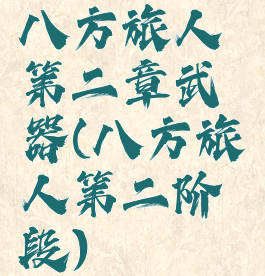 八方旅人
第二章武
器(八方旅
人第二阶
段)